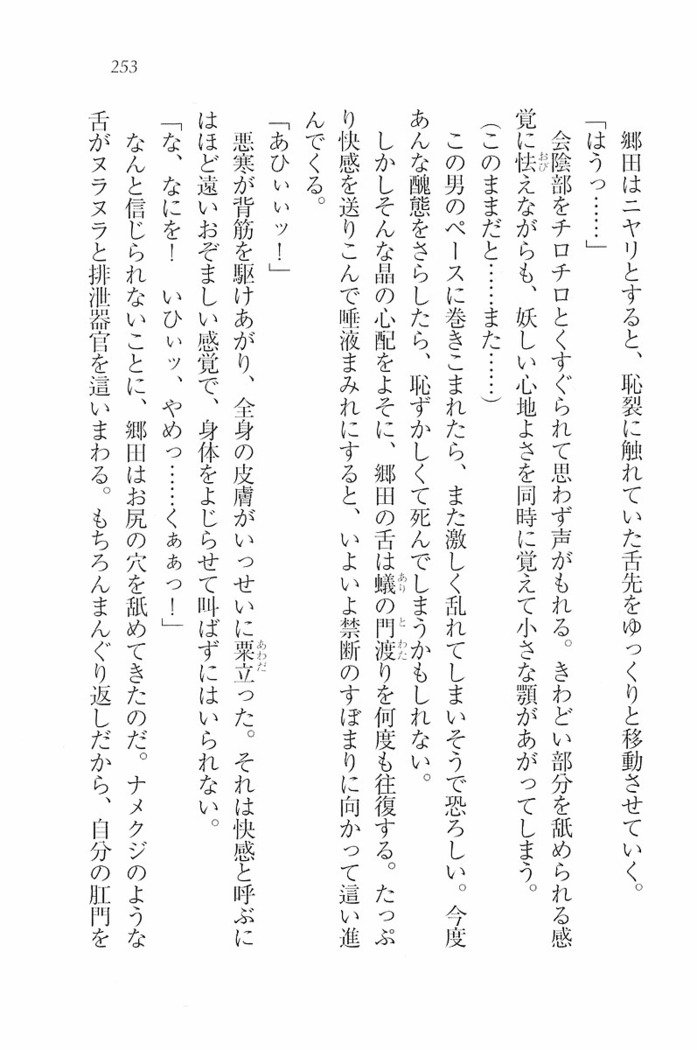 253
郷田はニヤリとすると、恥裂に触れていた舌先をゆっくりと移動させていく。
「はうっ……」
会陰部をチロチロとくすぐられて思わず声がもれる。きわどい部分を舐められる感
おび
覚に怯えながらも、妖しい心地よさを同時に覚えて小さな顎があがってしまう。
(このままだと……また……)
この男のペースに巻きこまれたら、また激しく乱れてしまいそうで恐ろしい。今度
あんな醜態をさらしたら、恥ずかしくて死んでしまうかもしれない。
あり と わた
しかしそんな晶の心配をよそに、郷田の舌は蟻の門渡りを何度も往復する。たっぷ
り快感を送りこんで唾液まみれにすると、いよいよ禁断のすぼまりに向かって這い進
んでくる。
「あひぃぃッ!」
あわだ
悪寒が背筋を駆けあがり、全身の皮膚がいっせいに粟立った。それは快感と呼ぶに
はほど遠いおぞましい感覚で、身体をよじらせて叫ばずにはいられない。
「な、なにを! いひぃッ、やめっ……くぁぁっ!」
なんと信じられないことに、郷田はお尻の穴を舐めてきたのだ。ナメクジのような
舌がヌラヌラと排泄器官を這いまわる。もちろんまんぐり返しだから、自分の肛門を